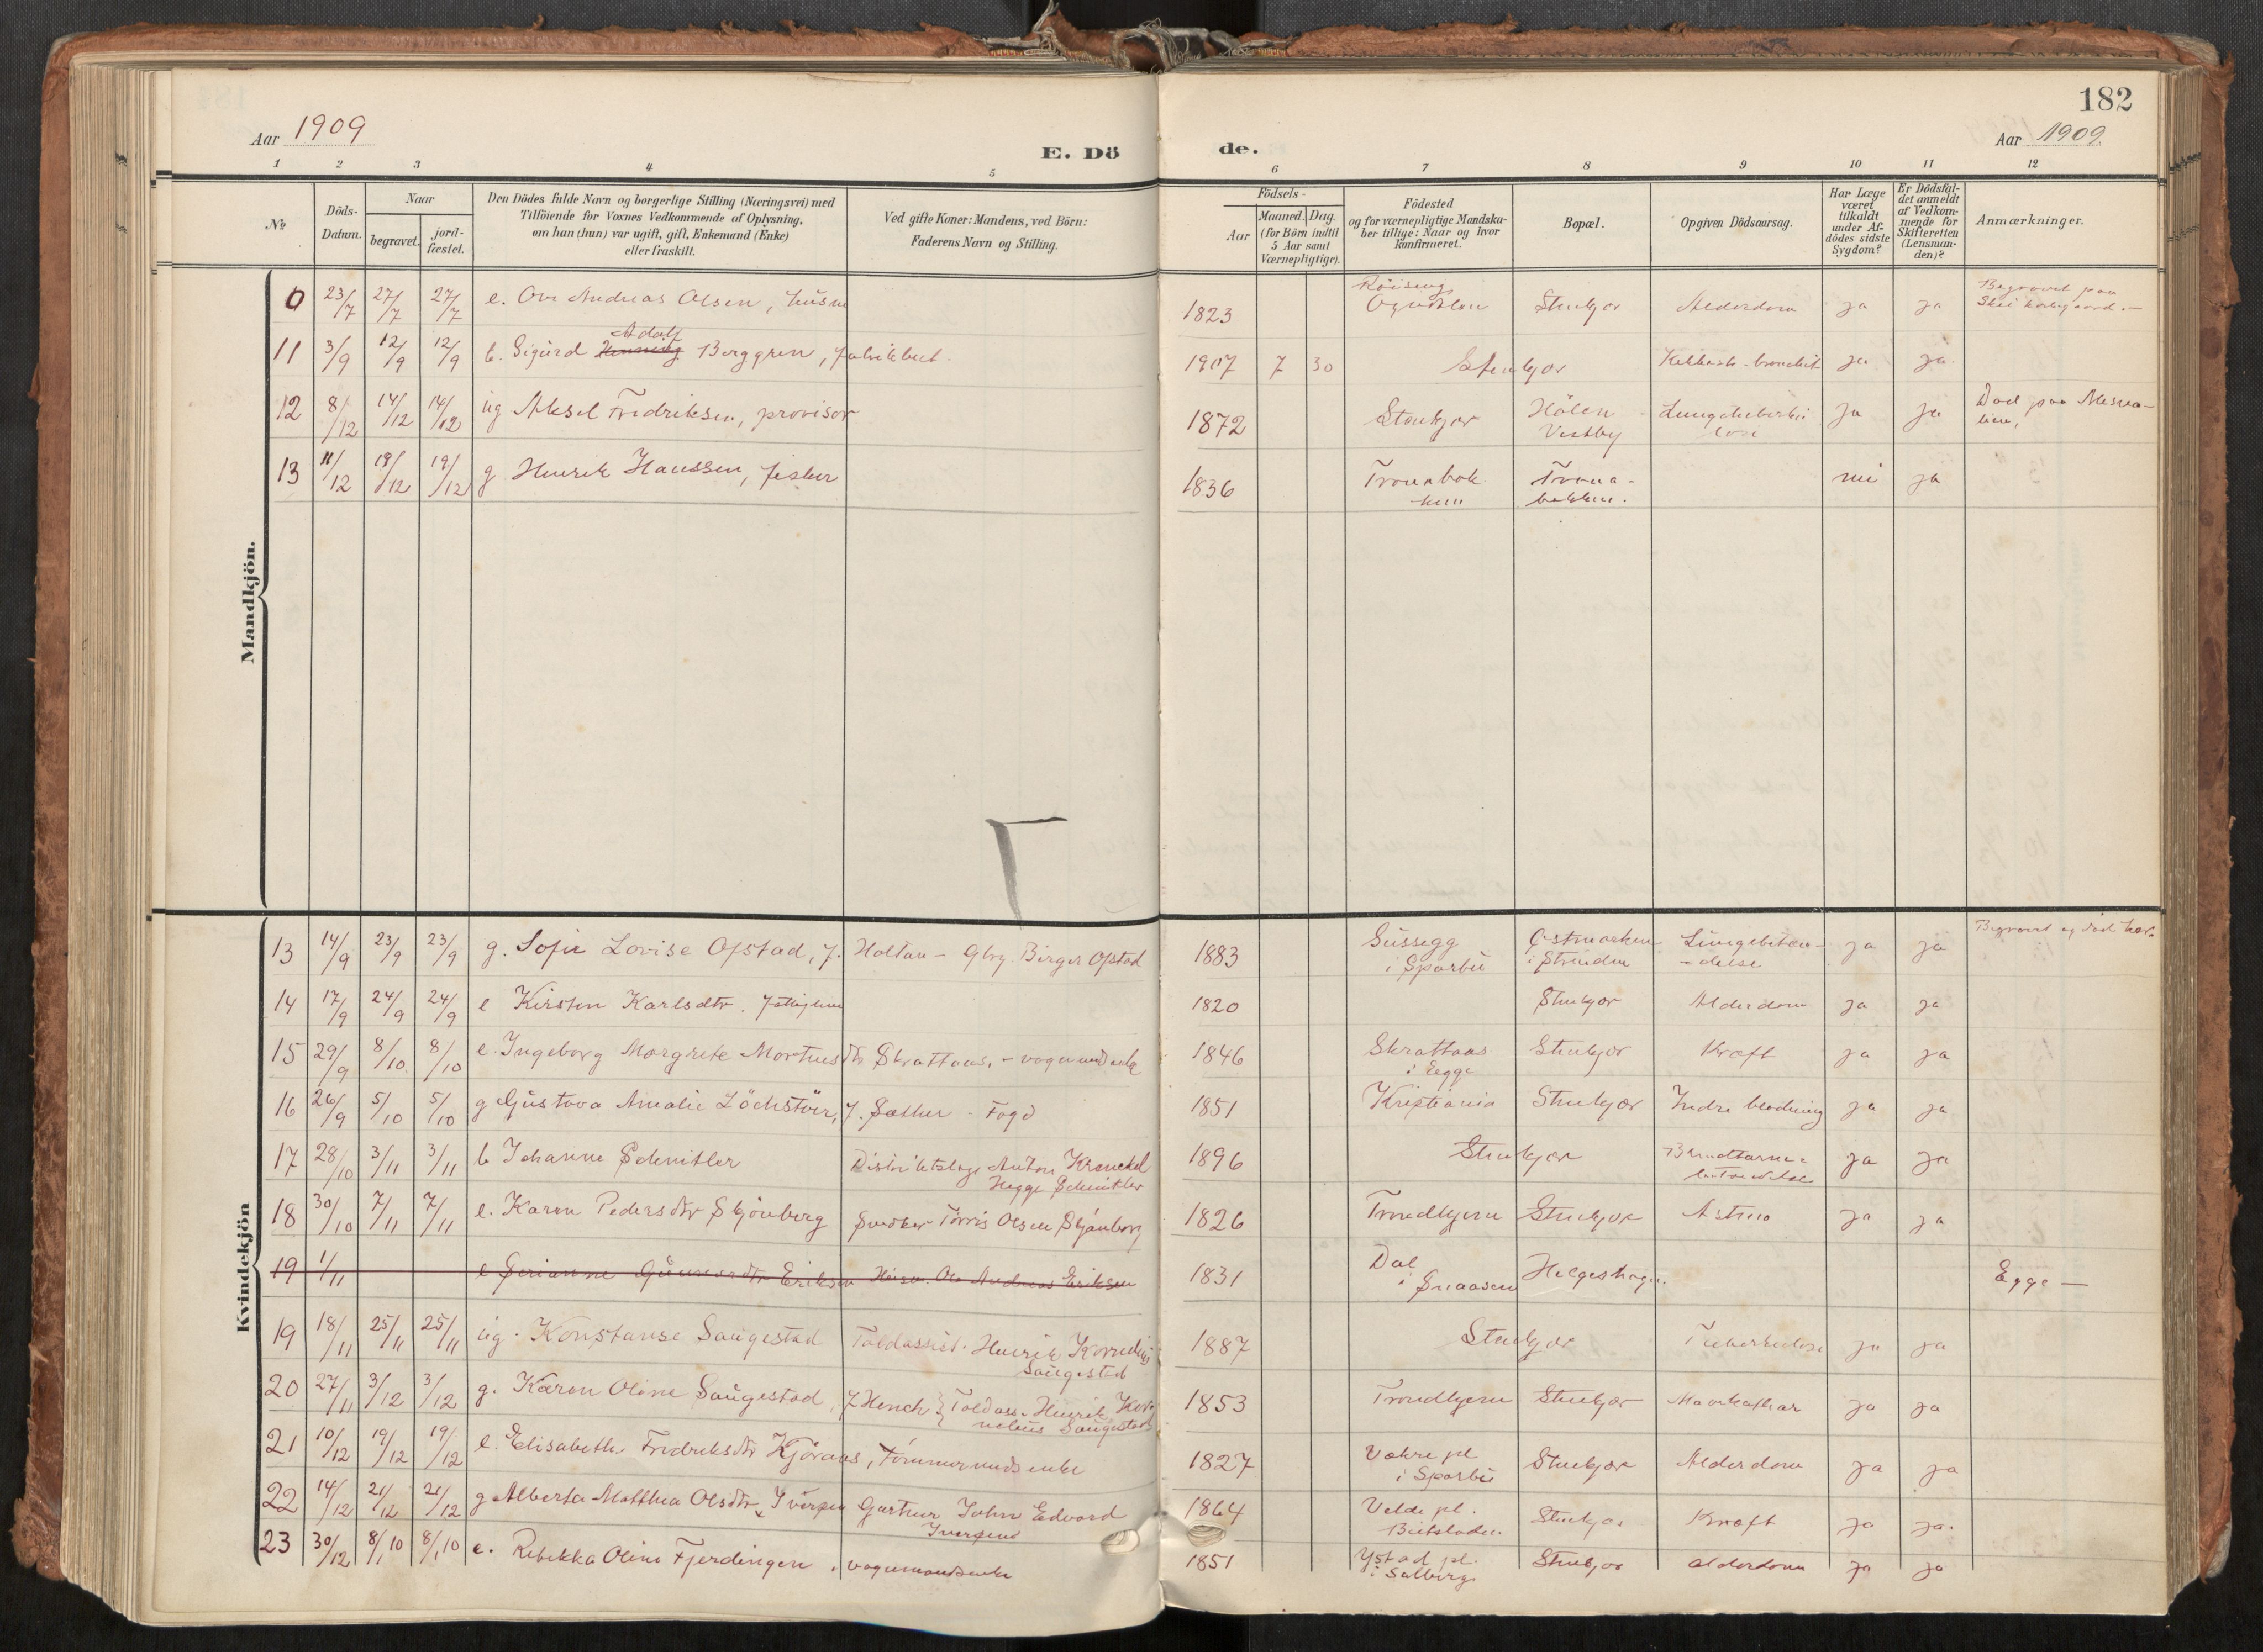 182
Aar 1909
E. Dö
de.
Aar 1909.
1 2 3 4 5 6 7 8 9 10 11 12
№
Döds-Datum.
Naar
begravet.
jord-fæstet.
Den Dödes fulde Navn og borgerlige Stilling (Næringsvei) med
Tilföiende for Voxnes Vedkommende af Oplysning,
om han (hun) var ugift, gift, Enkemand (Enke)
eller fraskilt.
Ved gifte Koner: Mandens, ved Börn:
Faderens Navn og Stilling.
Födsels-
Aar
Maaned. Dag.
(for Börn indtil
5 Aar samt
Værnepligtige).
Födested
og for værnepligtige Mandska-
ber tillige: Naar og hvor
konfirmeret.
Bopæl.
Opgiven Dödsaarsag.
Har Læge
været
tilkaldt
under Af-
dödes sidste
Sygdom?
Er Dödsfal-
det anmeldt
af Vedkom-
mende for
Skifteretten
(Lensman-
den)?
Anmærkninger.
Mandkjön.
0 23/7 27/7 27/7 e. Ove Andreas Olsen, husm 1823 Röising Ogndalen Stenkjær Alderdom ja ja Begravet paa Skei kirkegaard.
11 3/9 12/9 12/9 b. Sigurd Henning Adolf Berggren, fabrikbest. 1907 7 30 Stenkjær ja ja
12 8/12 14/12 14/12 ug Aksel Fredriksen, provisor 1872 Stenkjær Hölen Vestby Lungetuberkulose ja ja Död paa Mesnalien,
13 11/12 19/12 19/12 g Henrik Hanssen, fisker 1836 Tronabakken Tronabakken. nei ja
Kvindekjön
13 14/9 23/9 23/9 g. Sofie Lovise Opstad, f. Holtan - Gbrg. Birger Opstad 1883 i Sparbu Östmarken i Strinden Lungebetændelse ja ja Begravet og död her
14 17/9 24/9 24/9 e Kirsten Karlsdtr. fattiglem 1820 Stenkjær Alderdom ja ja
15 29/9 8/10 8/10 e. Ingeborg Margrete Mortensdtr Skrattaas, - vognmandsenke 1846 Skrattaas i Egge Stenkjær Kræft ja ja
16 26/9 5/10 5/10 g Gustava Amalie Löchstöer, f. Sæther - Fogd 1851 Kristiania Stenkjær Indre blødning ja ja
17 28/10 3/11 3/11 b Johanne Schnitler Distriktslæge Anton Krenckel Hegge Schnitler 1896 Stenkjær Blindtarmsbetændelse ja ja
18 30/10 7/11 7/11 e. Karen Pedersdtr Skjönberg Snedker Torris Olsen Skjönberg 1826 Trondhjem Stenkjær Astma ja ja
19 1/11 e Serianne Gunnersdtr Eriksen Husm. Ole Andreas Eriksen 1831 Dal i Snaasen Helgeshagen. Egge —
19 18/11 25/11 25/11 ug. Konstanse Saugestad Toldassist. Henrik Kornelius Saugestad 1887 Stenkjær Tuberkulose ja ja
20 27/11 3/12 3/12 g. Karen Oline Saugestad, f Henck Toldass. Henrik Kornelius Saugestad 1853 Trondhjem Stenkjær Mavekathar ja ja
21 10/12 19/12 19/12 e. Elisabeth Fredriksdtr Kjöraas, Tömmermandsenke 1827 Vækre pl i Sparbu Stenkjær Alderdom ja ja
22 14/12 21/12 21/12 g Alberta Matthea Olsdtr Iversen Gartner John Edvard Iversens 1864 Velde pl. Beitstaden Stenkjær Kræft ja ja.
23 30/12 8/1 10 8/1 10 e. Rebekka Oline Fjerdingen, vognmandsenke 1851 Ystad pl. i Salberg Stenkjær alderdom ja ja